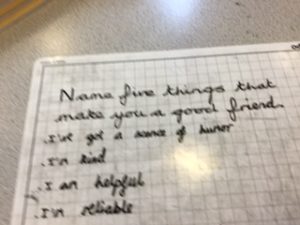 Name five things that
make you a good friend.
.I've got a scence of humor
.I'm kind
.I am helpful
.I'm reliable